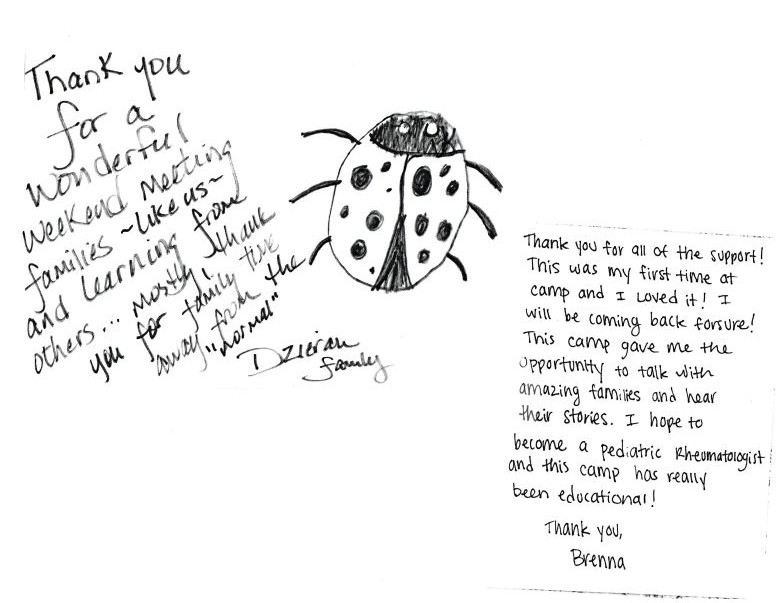 Thank you
for a
wonderful
weekend meeting
families ~ like us ~
and learning from
others... mostly, thank
you for family time
away from the
"normal"
Dzieran
family
Thank you for all of the support!
This was my first time at
camp and I loved it! I
will be coming back forsure!
This camp gave me the
opportunity to talk with
amazing families and hear
their stories. I hope to
become a pediatric Rheumatologist
and this camp has really
been educational!
Thank you,
Brenna